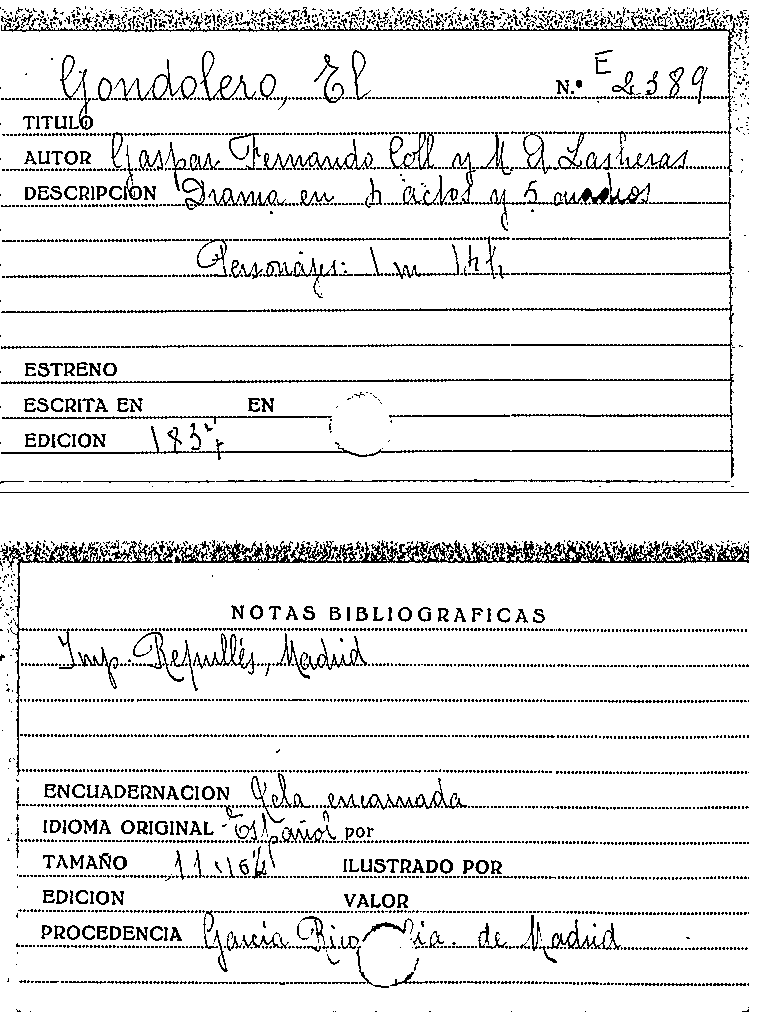 Gondolero, El N.º E 2389
TITULO
AUTOR Gaspar Fernando Coll y M A Lasheras
DESCRIPCION Drama en 4 actos y 5 cuadros
Personajes: 1 m 14 h
ESTRENO
ESCRITA EN EN
EDICION
NOTAS BIBLIOGRAFICAS
Imp. Repullés, Madrid
ENCUADERNACION Tela encarnada
IDIOMA ORIGINAL Español por
TAMAÑO ILUSTRADO POR
EDICION VALOR
PROCEDENCIA García Rico de Madrid